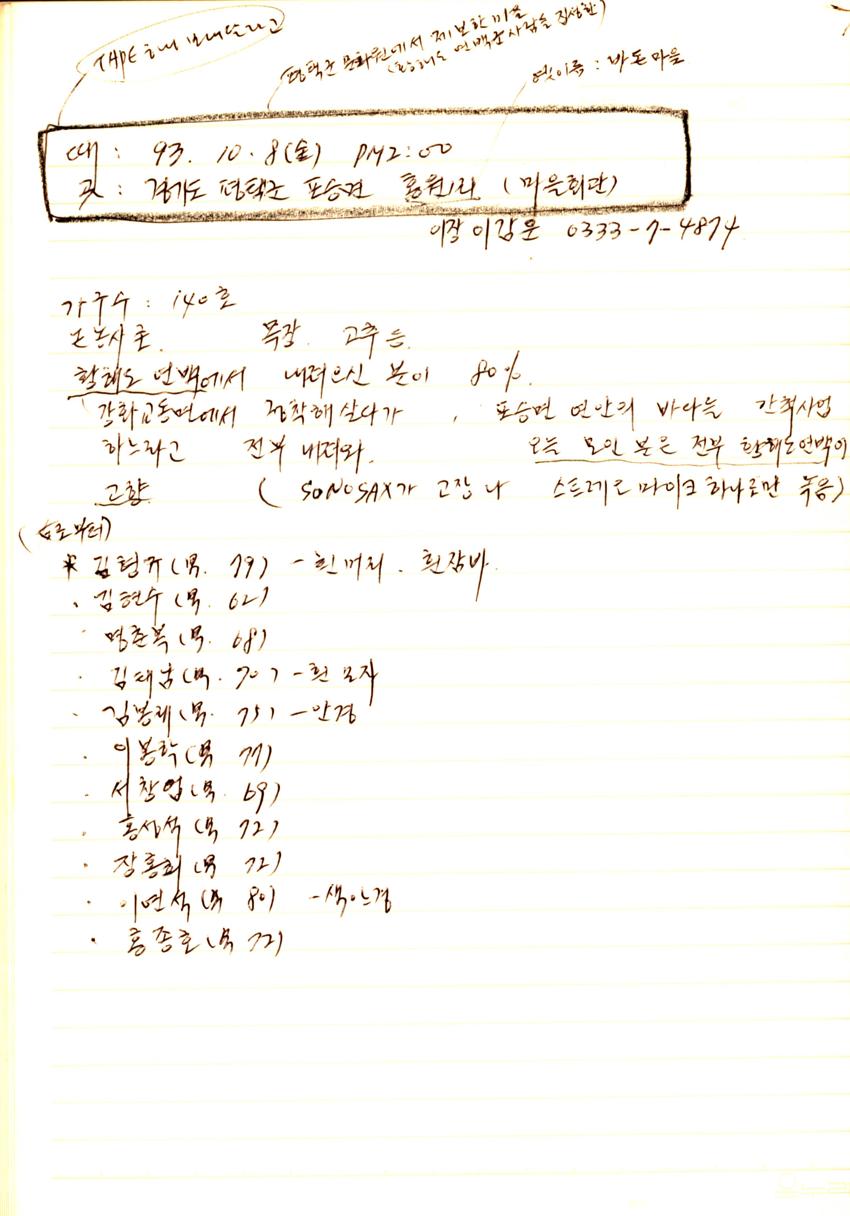 TAPE 하나 보내달라고
평택군 문화원에서 제보한 마을
(황해도 연백군 사람들 집성촌)
옛이름 : 바돈마을
때 : 93. 10. 8(金) PM2:00
곳 : 경기도 평택군 포승면 홍원리 (마을회관)
이장 이강운 0333-7-4874
가구수 : 140호
논농사로. 목장. 고추 등.
황해도 연백에서 내려오신 분이 80%.
강화교동면에서 정착해 살다가, 포승면 연안의 바다를 간척사업
하느라고 전부 내려와. 오늘 모인 분은 전부 황해도연백이
고향 (SONOSAX가 고장나 스트레오 마이크 하나로만 녹음)
(左로부터)
* 김형규(男. 79) - 흰머리. 흰잠바.
· 김현수(男. 62)
· 명춘복(男. 68)
· 김태남(男. 70) - 흰 모자
· 김봉래(男. 75) - 안경
· 이봉학(男 77)
· 서창업(男. 69)
· 홍성석(男 72)
· 장흥회(男 72)
· 이면석(男 80) - 색안경
· 홍종호(男 72)